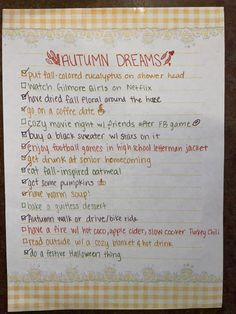 AUTUMN DREAMS
put fall-colored eucalyptus on shower head
watch Gilmore Girls on Netflix
have dried fall floral around the house
go on a coffee date
cozy movie night w/ friends after FB game
buy a black sweater w/ stars on it
enjoy football games in high school letterman jacket
get drunk at senior homecoming
eat fall-inspired oatmeal
get some pumpkins
have warm soup!
bake a guiltless dessert
Autumn walk or drive/bike ride
have a fire w/ hot coco, apple cider, slow cooker Turkey Chili
read outside w/ a cozy blanket & hot drink
do a festive Halloween thing